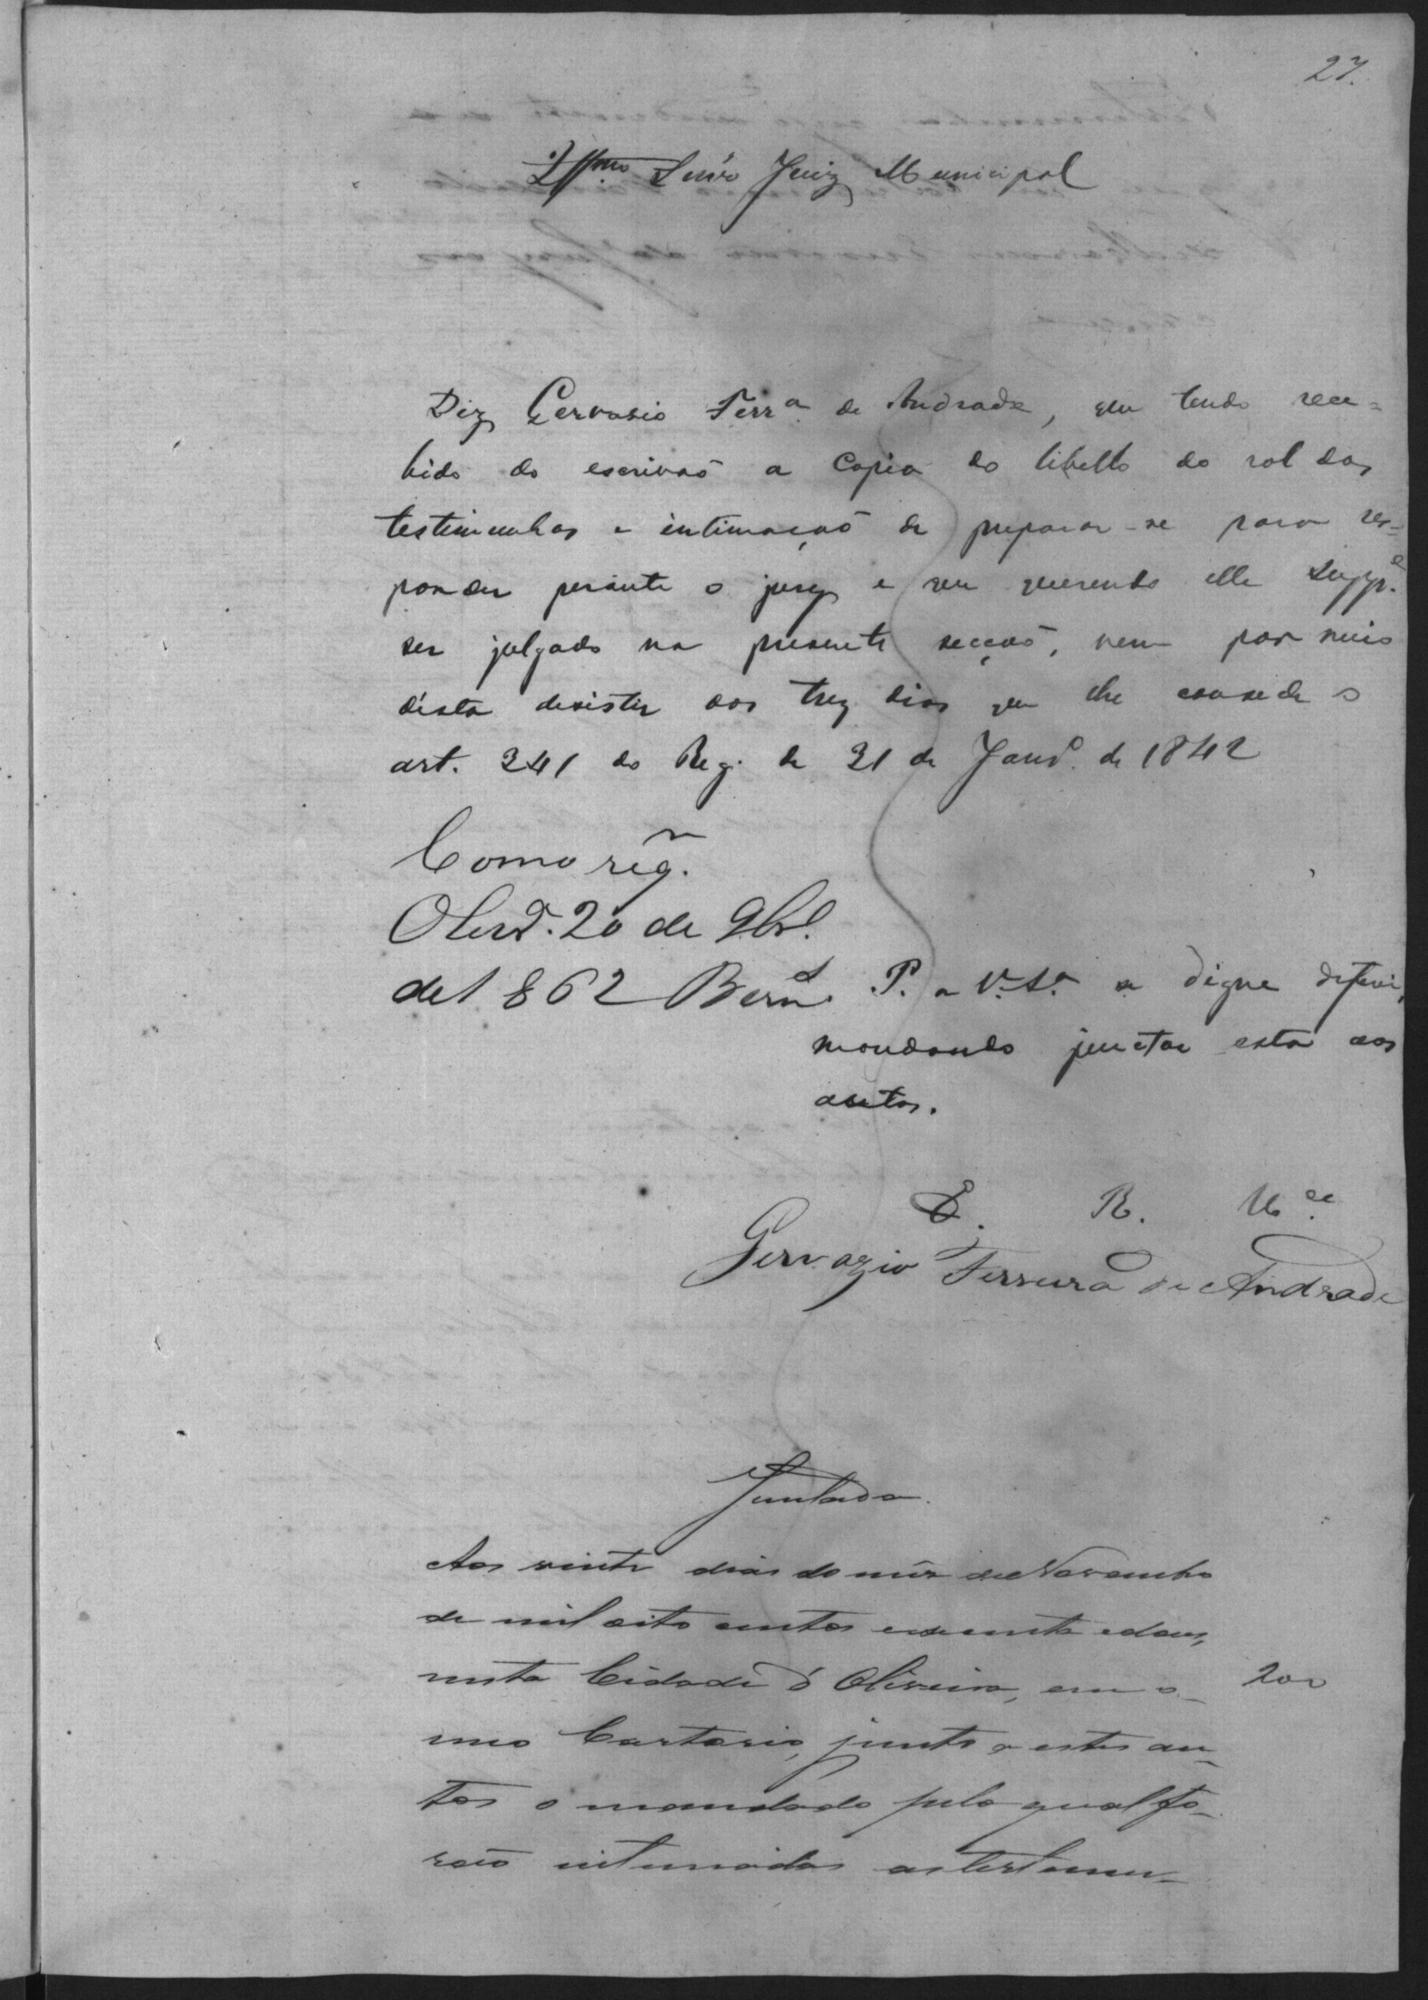 27.
Illmo Senr. Juiz Municipal
Diz Gervasio Ferra. de Andrade, que tendo rece-
bido do escrivaõ a copia do libello do rol das
testimunhas e intimaçaõ de preparar-se para res-
ponder perante o jury e que querendo elle Suppe.
ser julgado na presente secçaõ, vem por meio
desta desistir dos trez dias que lhe concede o
art. 341 do Reg. de 31 de Janro. de 1842
Como req.
Olivra. 20 de 9br.
de 1862 Bern
P. a V. Sa. se digne deferir,
mandando junctar esta aos
autos.
E. R. Mce.
Gervazio Ferreira de Andrade
Juntada
Aos vinte dias do mez de Novembro
de mil oito centos e sessenta e dous,
nesta Cidade d' Oliveira, em o
200
meo Cartorio, junto a estes au-
tos o mandado pelo qual fo-
raõ intimadas as testemu-